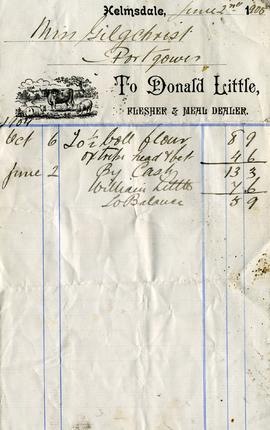 Helmsdale, June 2nd 1908
Miss Gilchrist
Portgower
To Donald Little,
FLESHER & MEAL DEALER.
Oct 6 To ½ boll flour 8 9
head & feet 4 6
13 3
June 2 By Cash
William Little 7 6
To Balance 5 9